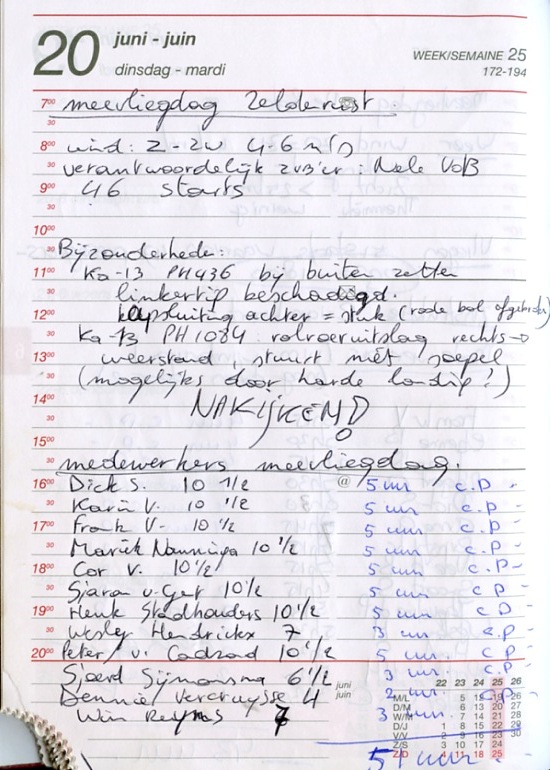 20 juni - juin
dinsdag - mardi
WEEK/SEMAINE 25
172-194
7⁰⁰ meevliegdag Zelderust
30
8⁰⁰ wind: Z-ZW 4-6 m/s
30 verantwoordelijk zvb'er: Nele VdB
9⁰⁰ 46 starts
30
10⁰⁰
30 Bijzonderheden:
11⁰⁰ Ka-13 PH436 bij buiten zetten
30 linkertip beschadigd.
12⁰⁰ kapsluiting achter = stuk (rode bol afgebroken)
30 Ka-13 PH1084: rolroeruitslag rechts →
13⁰⁰ weerstand, stuurt niet soepel
30 (mogelijks door harde landing!)
14⁰⁰ NAKIJKEN!
30
15⁰⁰
30 medewerkers meevliegdag.
16⁰⁰ Dick S. 10 1/2 @ 5 uur c.p -
30 Karin V. 10 1/2 5 uur c.p -
17⁰⁰ Frank V. 10 1/2 5 uur c.p -
30 Marijk Nanninga 10 1/2 5 uur c.p -
18⁰⁰ Cor v. 10 1/2 5 uur c.p -
30 Sjaran v. Gert 10 1/2 5 uur c p -
19⁰⁰ Henk Stadhouders 10 1/2 5 uur c p -
30 Wesley Hendrickx 7 3 uur c.p -
20⁰⁰ Peter v. Cadzand 10 1/2 5 uur c.p -
Sjoerd Sijmonsma 6 1/2 3 uur c.p -
Bennie Vercruysse 4 2 uur cp -
Wim 7 3 uur -
51 uur
juni
juin
22 23 24 25 26
M/L 5 12 19 26
D/M 6 13 20 27
W/M 7 14 21 28
D/J 1 8 15 22 29
V/V 2 9 16 23 30
Z/S 3 10 17 24
Z/D 4 11 18 25